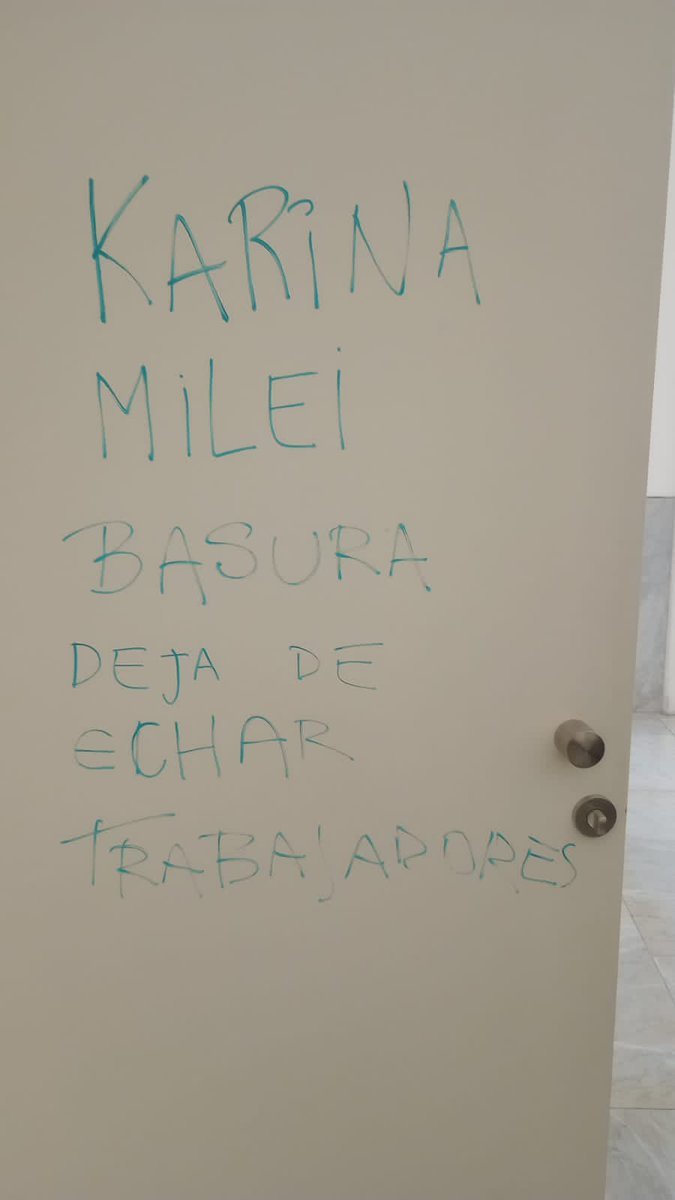 KARiNA
MiLEi
BASURA
DEJA DE
ECHAR
TRABAJADORES